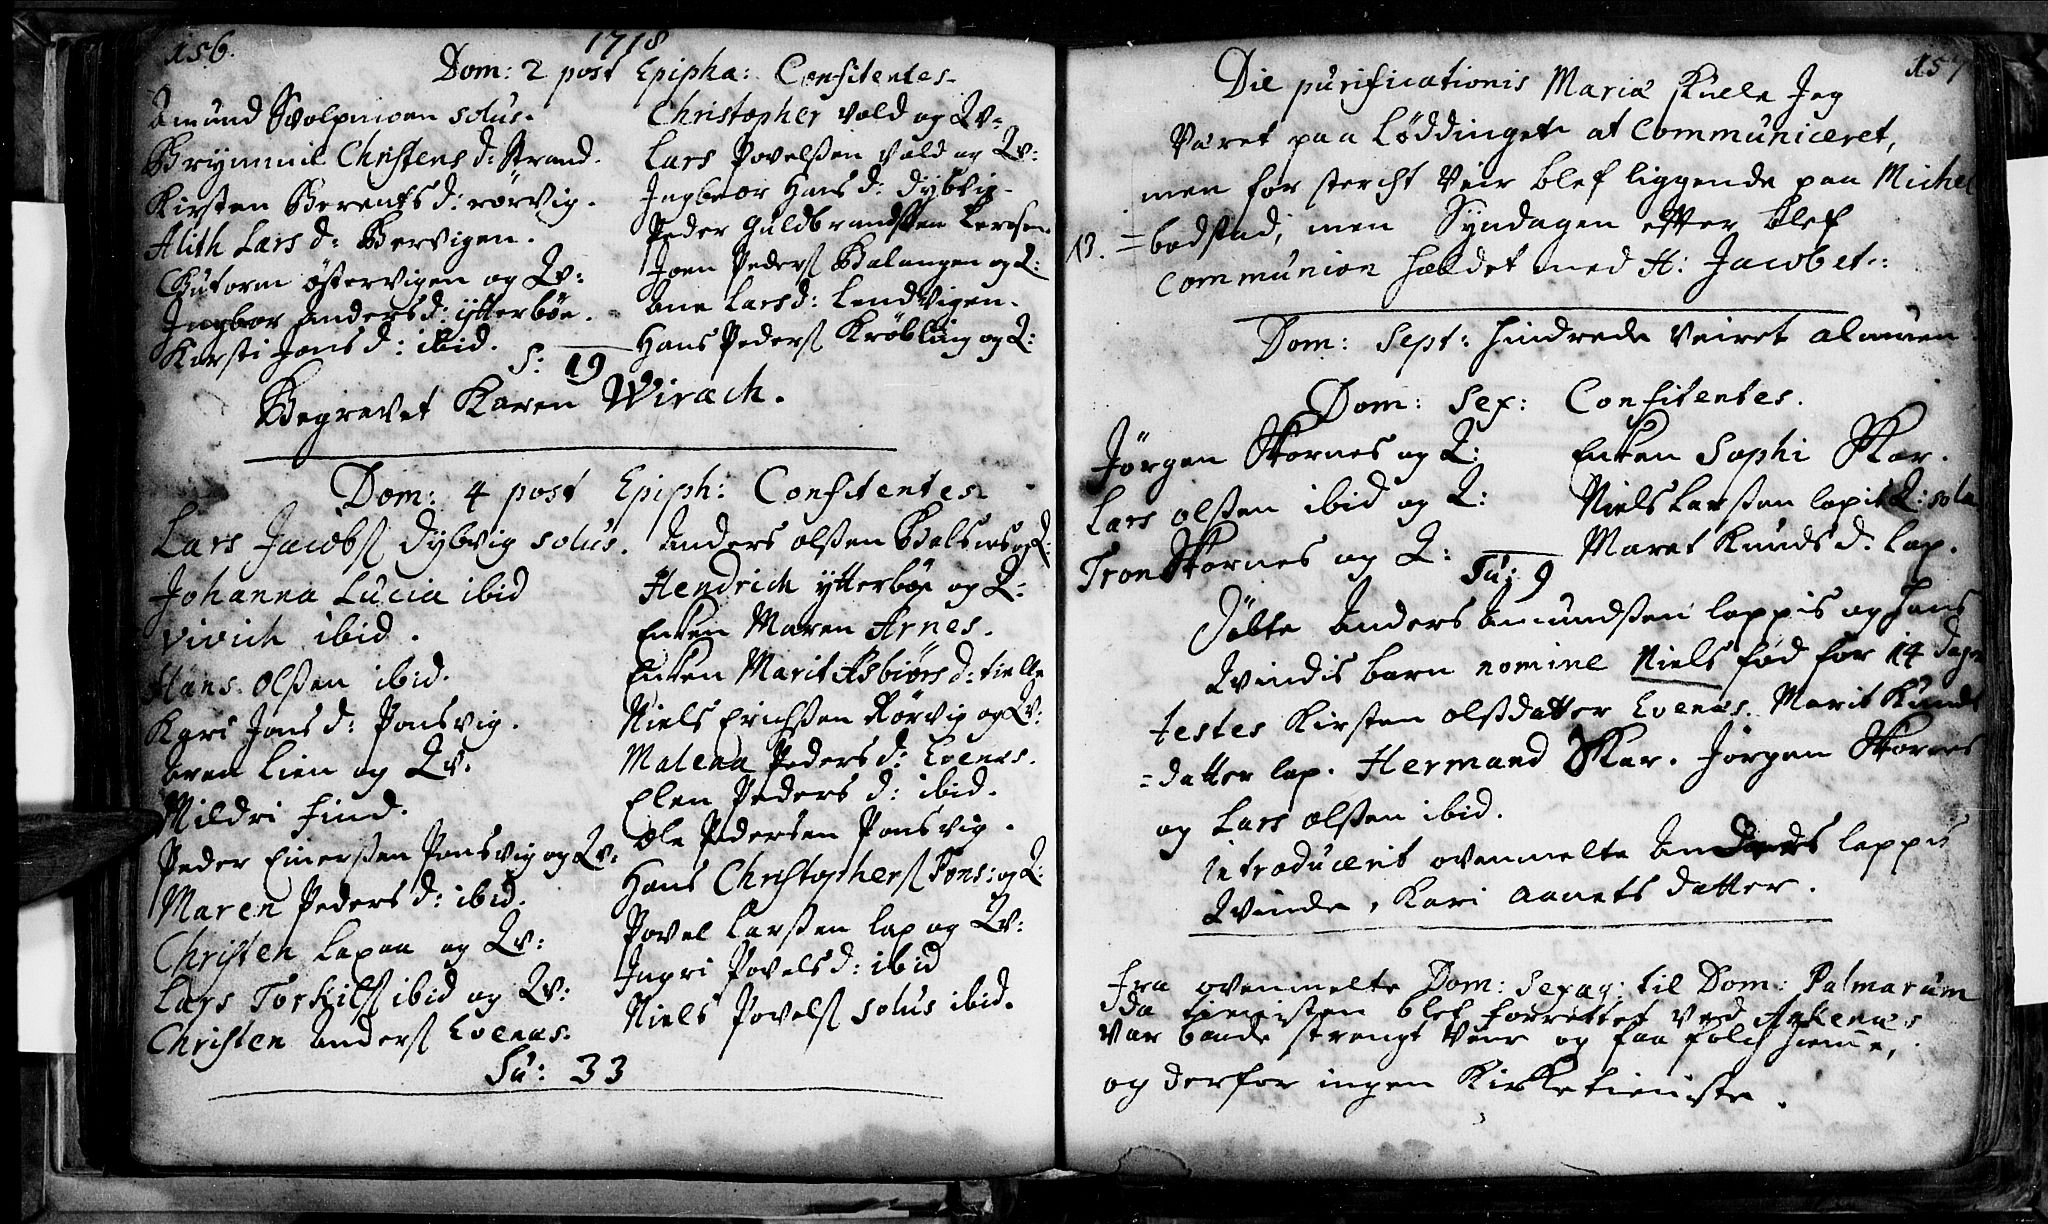 156.
1718
Dom: 2 post Epipha: Confitentes
Amund Svolpmoen solus.
Brynnmil Christens d: Strand.
Kirsten Berents d: rörvig.
Alith Lars d: Bervigen.
Gutorm östervigen og Qv:
Ingbor Anders d: ytterböe.
Karsti Jons d: ibid.
Christopher vold og Qv=
Lars Povelßen vald og Qv:
Ingbeor Hans d: dybvig.
Peder Guldbrandßen
Joen Peders Balangen og Q:
Ane Lars d: Lendvigen.
Hans Peders Kröbling og Q:
S: 19
Begravet Karen Wirach.
Dom: 4 post Epiph: Confitentes
Lars Jacobs dybvig solus.
Johanna Lucia ibid
Vivich ibid.
Hans Olßen ibid.
Kari Jons d: Ponsvig.
Aren Lien og Qv.
Mildri find.
Peder Einerßen Ponsvig og Qv.
Maren Peders d: ibid.
Christen Lapaa og Qv:
Lars Torkils ibid og Qv:
Christen Anders Evenæs.
Anders olßen Balsnes og Q.
Hendrich ytterböe og Q:
Enken Maren Arnes.
Enken Marit Asbiörs d: tielle
Niels Erichßen Rörvig og Qv:
Malena Peders d: Evenæs.
Elen Peders d: ibid.
Ole Pedersen Ponsvig.
Hans Christophers Pons: og Q:
Povel Larßen lap og Qv:
Ingri Povels d: ibid
Niels Povels solus ibid.
Su: 33
157
Die purificationis Mariæ skulle Jeg
Været paa Löddinget at Communiceret,
men for stercht Veir blef liggende paa Michel
13. =bodstad, men Syndagen effter blef
Communion holdet med H: Jacob et:
Dom: Sept: hindrede Veiret almuen
Dom: Sex: Confitentes.
Jörgen Skornes og Q:
Lars olßen ibid og Q:
Tron Skornes og Q:
Enken Sophi Skar.
Niels Larßen lapis Q: sola
Maret Knuds d: lap.
Su: 9
Döbte Anders Amundßen lappis og hans
Qvindis barn nomine Niels föd for 14 dage
testes Kirsten olßdatter Evenæs. Marit Knuds
=datter lap. Hermand Skar. Jörgen Skornes
og Lars olßen ibid.
introducerit ovenmelte Anders lappis
Qvinde, Kari Aanets datter.
fra ovenmelte Dom: Sexag: til Dom: Palmarum
da tienisten blef forrettet ved Ankenæs
var baade strengt Veir og faa folch hieme,
og derfor ingen Kirketieniste.